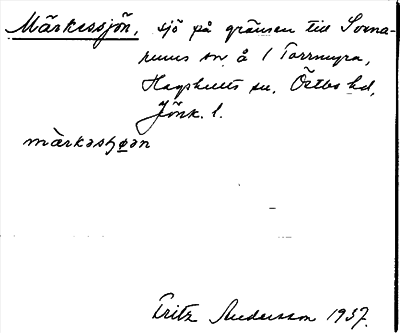 Märkessjön, sjö på gränsen till Sunna-
rums sn å / Torrmyra,
Hagshults sn, Östbo hd,
Jönk. l.
màrkəsɧøən
Fritz Andersson 1937.